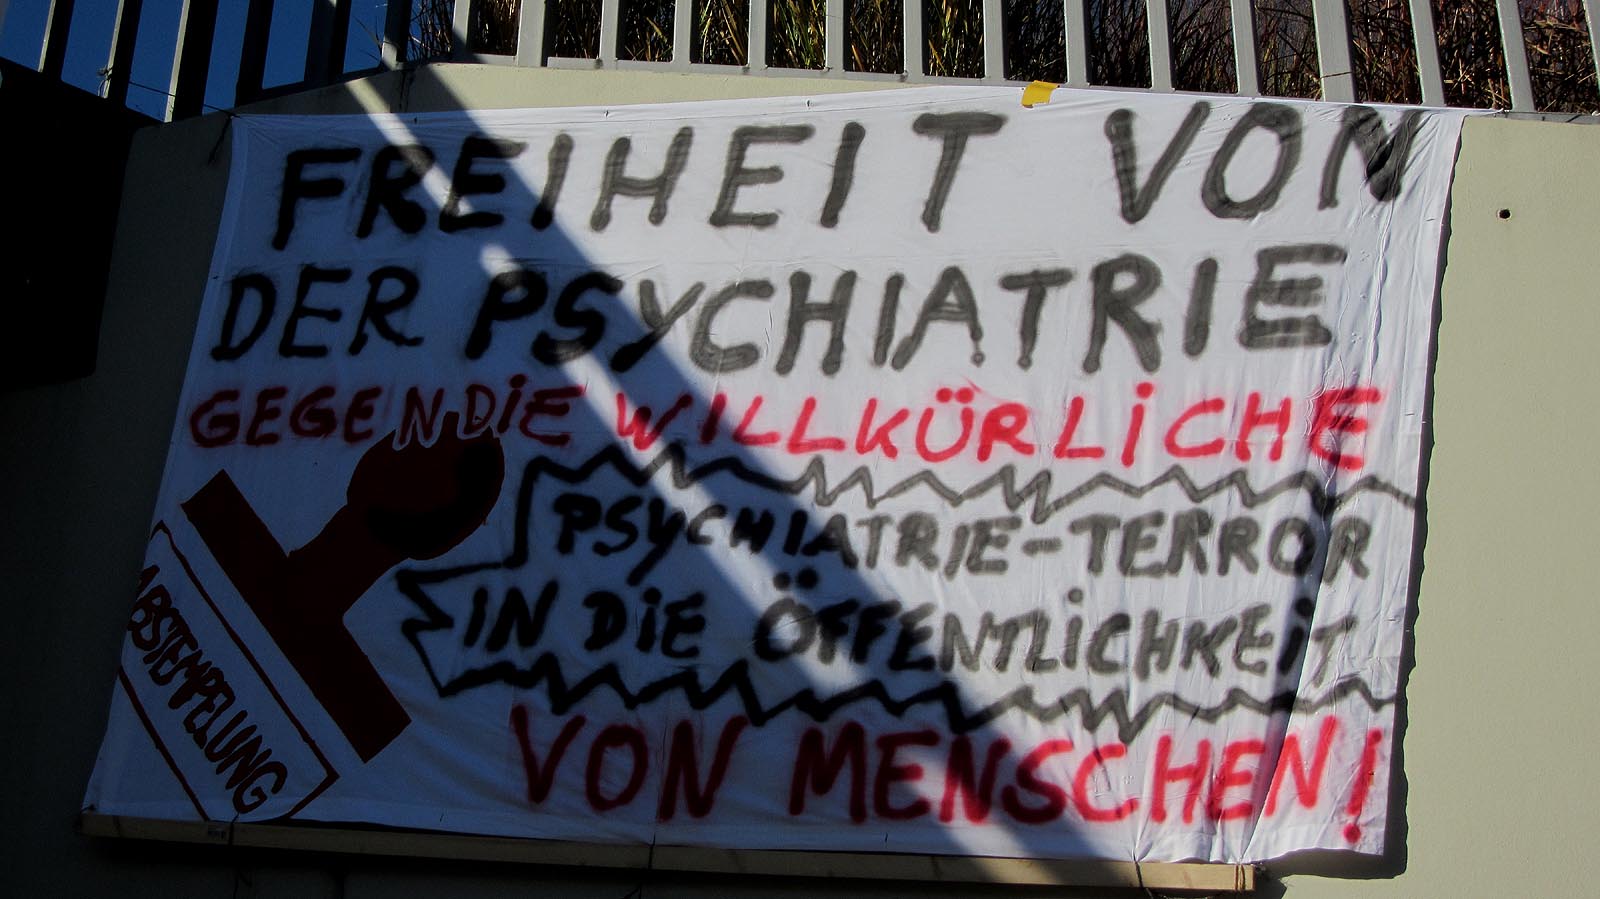 FREIHEIT VON
DER PSYCHIATRIE
GEGEN DiE WILLKÜRLiCHE
PSYCHIATRIE-TERROR
IN DiE ÖFFENTLiCHKEiT
VON MENSCHEN!
ABSTEMPELUNG